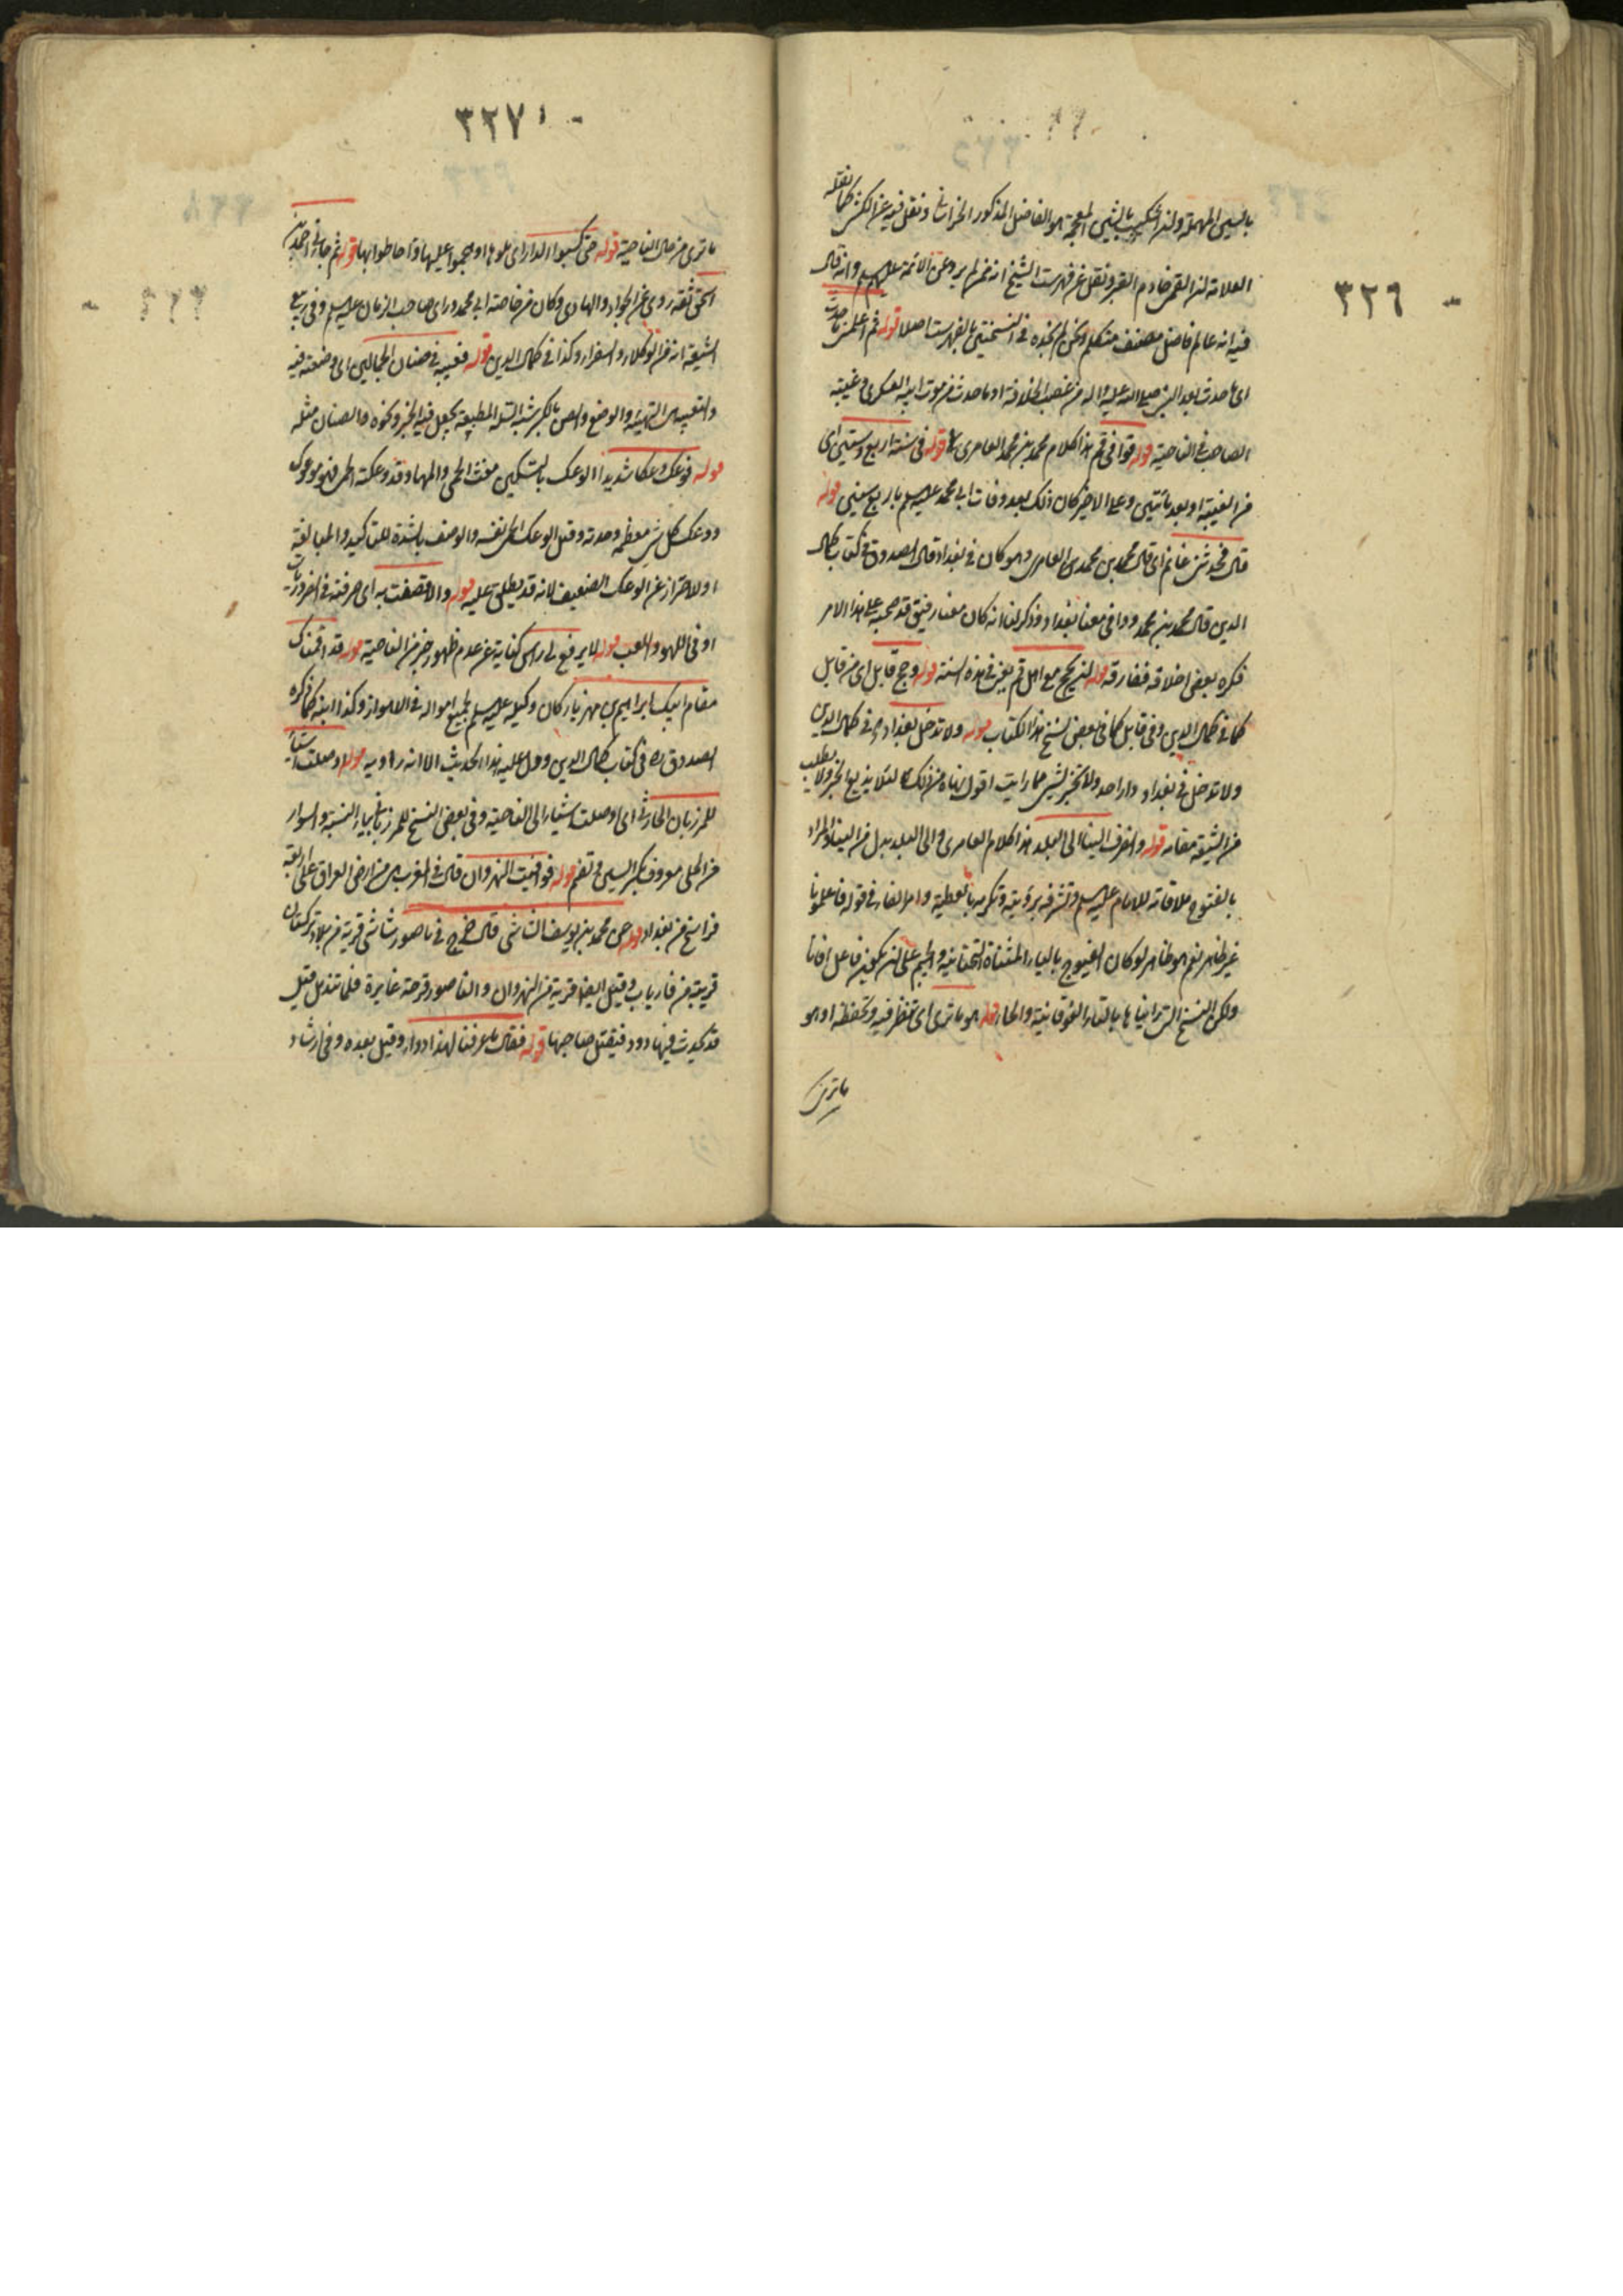 ٣٢٦
بالسين المهملة ولنا اسكيب بالشين المعجمة هو الفاضل المذكور الخراساني ونقل فيه عن الكشي كما نقله
العلامة القمي خادم القبر ونقل عن فهرست الشيخ انه ممن لم يرو عن الائمة عليهم السلام وانه قال
فيه انه عالم فاضل مصنف متكلم ونحن لم نجده في النسختين بالفهرست اصلا قوله ثم اعلمن ما حدث
اى ما حدث بعد النبي صلى الله عليه واله من غصب الخلافة او ما حدث من موت ابيه العسكري وغيبته
الصاحب في الناحية قوله فوافى قم هذا كلام محمد بن محمد العامري قوله في سنة اربع وستين اى
من الغيبة او بعد مأتين وعلى الاخير كان ذلك بعد وفات ابي محمد عليه السلام باربع سنين قوله
قال فحدثني غانم اى قال محمد بن محمد العامري وهو كان في بغداد قال الصدوق في كتاب كمال
الدين قال محمد بن محمد ووافى معنا بغداد وذكر لنا انه كان معنا رفيق قد صحبه على هذا الامر
فكره بعض اخلاقه ففارقه قوله لنحج مع اهل قم يعني في هذه السنة قوله وحج قابل اى من قابل
كما في كمال الدين وفي قابل كما في بعض نسخ هذا الكتاب قوله ولا تدخل بغداد وفي كمال الدين
ولا تدخل في بغداد دار احد ولا تخبر بشيء مما رايت اقول نهاه من ذلك لئلا يذيع الخبر ولا يطلب
من الشيعة مقامه قوله وانصرف الينا الى البلد هذا كلام العامري والى البلد بدل من الينا والمراد
بالفتوح ملاقاته للامام عليه السلام وتشرفه برؤيته وتكريمه بالعطية وامر الفاء في قوله فاعلمونا
غير ظاهر نعم هو ظاهر لو كان الفيوج بالياء المثناة التحتانية والجيم على ان يكون فاعل افانا
ولكن النسخ التي رايناها بالتاء الفوقانية والحاء قوله هو ما ترى اى تنظر فيه وتحفظه او هو
ما ترى
٣٢٧
ما ترى من مال الناحية قوله حتى كسبوا الدار اى علوها او هجموا عليها واحاطوا بها قوله ثم جاءني احمد بن
اسحق ثقة روى عن الجواد والهادى وكان من خاصة ابي محمد وراى صاحب الزمان عليه السلام وفي ربيع
الشيعة انه من الوكلاء والسفراء وكذا في كمال الدين قوله فعيبه في صنان الحمالين اى وضعته فيه
والتعيية التهيئة والوضع والصن بالكسر شبه السلة المطبقة يجعل فيه الخبز ونحوه والصنان مثله
قوله فوعك وعكا شديدا الوعك بالتسكين مغث الحمى والمها وقد وعكته الحمى فهو موعوك
ووعك كل شيء معظمه وحدته وقيل الوعك الحمى نفسه والوصف بالشدة للتاكيد والمبالغة
او الاحتراز عن الوعك الضعيف لانه قد يطلق عليه قوله والا قصفت به اى صرفته في الضروريات
او في اللهو واللعب قوله لا يرفع لي راس كناية عن عدم ظهور خبر من الناحية قوله قد اقمناك
مقام ابيك ابراهيم بن مهزيار كان وكيله عليه السلام لجميع امواله في الاهواز وكذا ابنه كما ذكره
الصدوق ره في كتاب كمال الدين ودل عليه هذا الحديث الا انه راويه قوله اوصلت اشياء
للمرزبان الحارثي اى اوصلت اشياء الى الناحية وفي بعض النسخ للمرزباني بياء النسبة والسوار
من الحلى معروف بكسر السين وتضم قوله فوافيت النهروان قال في المغرب هي من ارض العراق على اربعة
فراسخ من بغداد قوله عن محمد بن يوسف الشاشي قال خرج في ناصور شاش قرية من بلاد تركستان
قريبة من فارياب وقيل ايضا قرية من النهروان والناصور قرحة غايرة قلما تندمل وقيل
قد يحدث فيها دود فيقتل صاحبها قوله فقال ما عرفنا لهذا دواء وقيل بعده وفي ارشاد